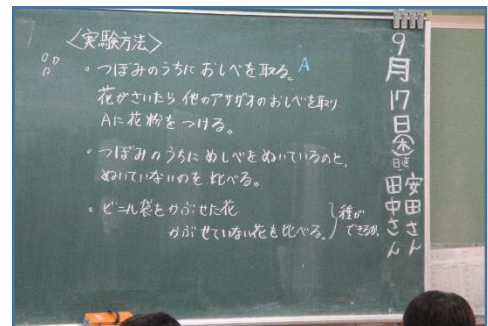 〈実験方法〉
・つぼみのうちに おしべを取る。A
花がさいたら 他のアサガオのおしべを取り
Aに花粉をつける。
・つぼみのうちに めしべをぬいているのと、
ぬいていないのを 比べる。
・ビニル袋をかぶせた花
かぶせていない花を比べる。
種が
できるか。
9月17日(木)
日直
安田さん
田中さん